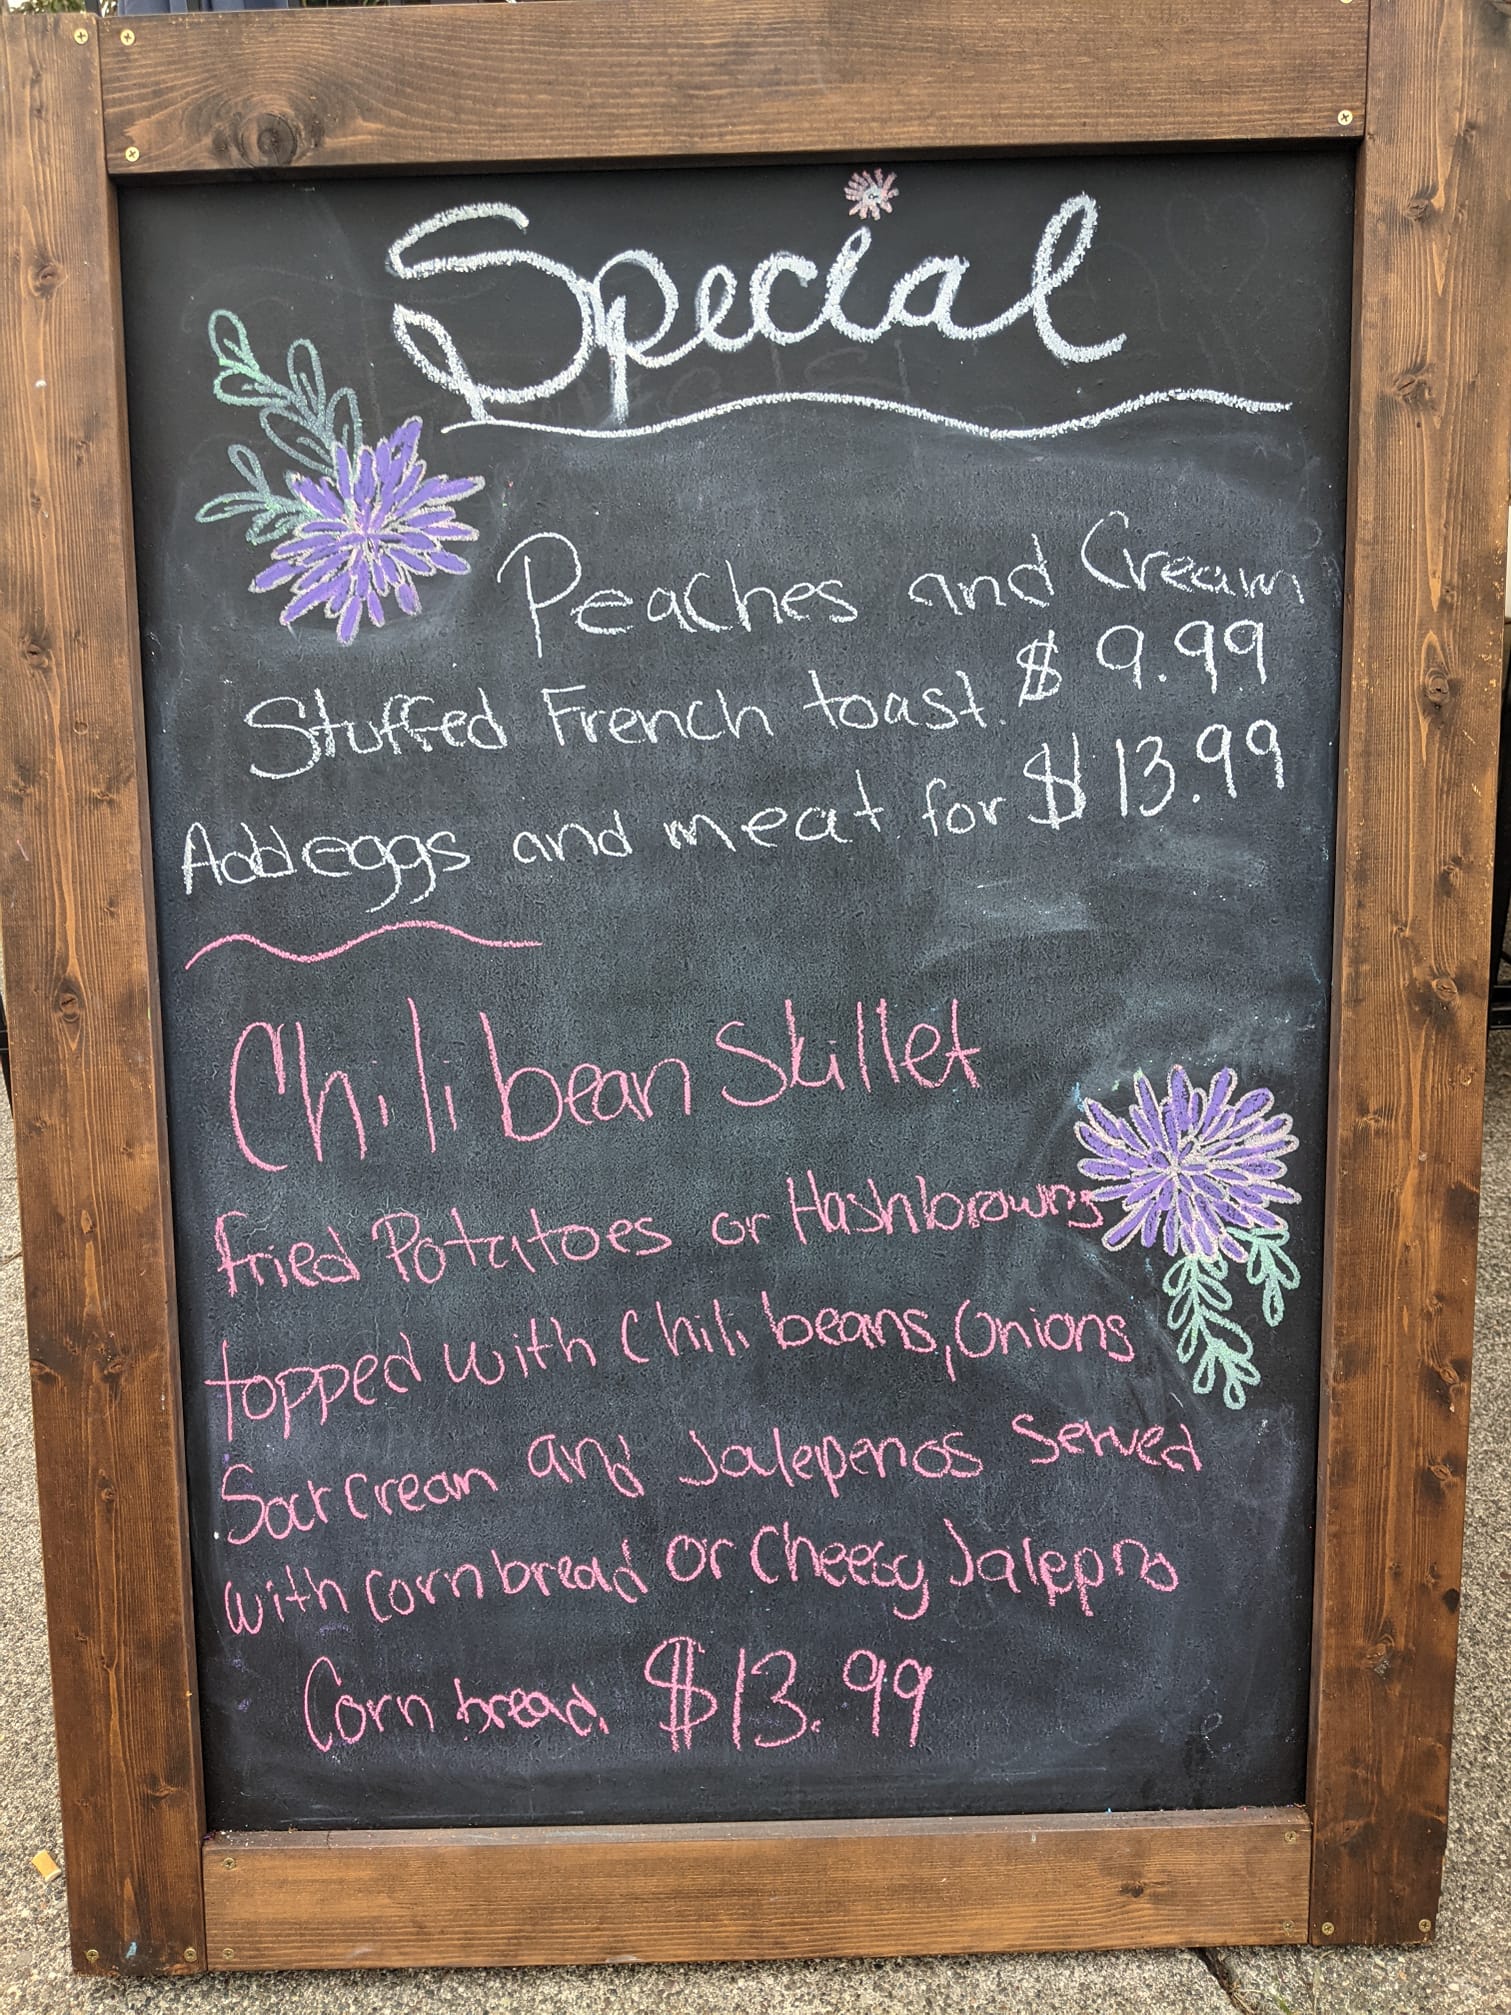 Special
Peaches and Cream
Stuffed French toast. $ 9.99
Add eggs and meat for $ 13.99
Chili bean Skillet
Fried Potatoes or Hashbrowns
topped with Chili beans, Onions
Sour Cream and Jalepenos Served
with Cornbread or Cheesy Jalepno
Corn bread. $13.99